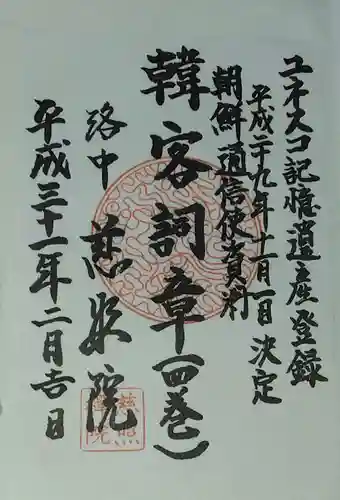 ユネスコ記憶遺産登録
平成二十九年十一月一日決定
朝鮮通信使資料
韓客詞章(四巻)
洛中慈照院
平成三十一年二月吉日
慈照院